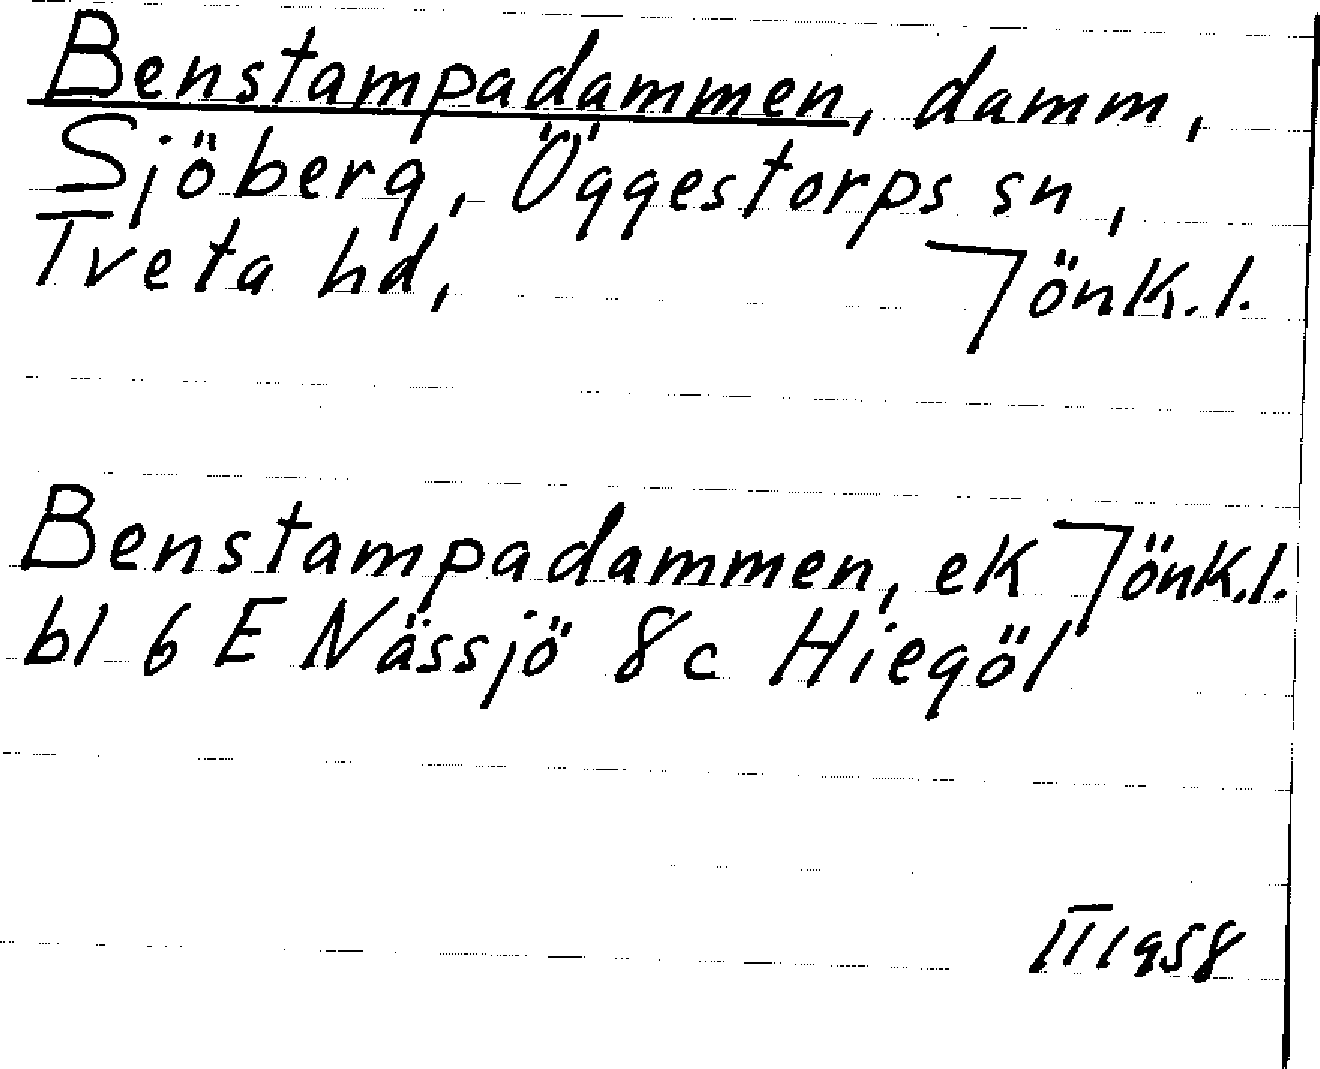 Benstampadammen, damm,
Sjöberg, Öggestorps sn,
Tveta hd, Jönk.l.
Benstampadammen, ek Jönk.l.
bl 6 E Nässjö 8c Hiegöl
II 1958